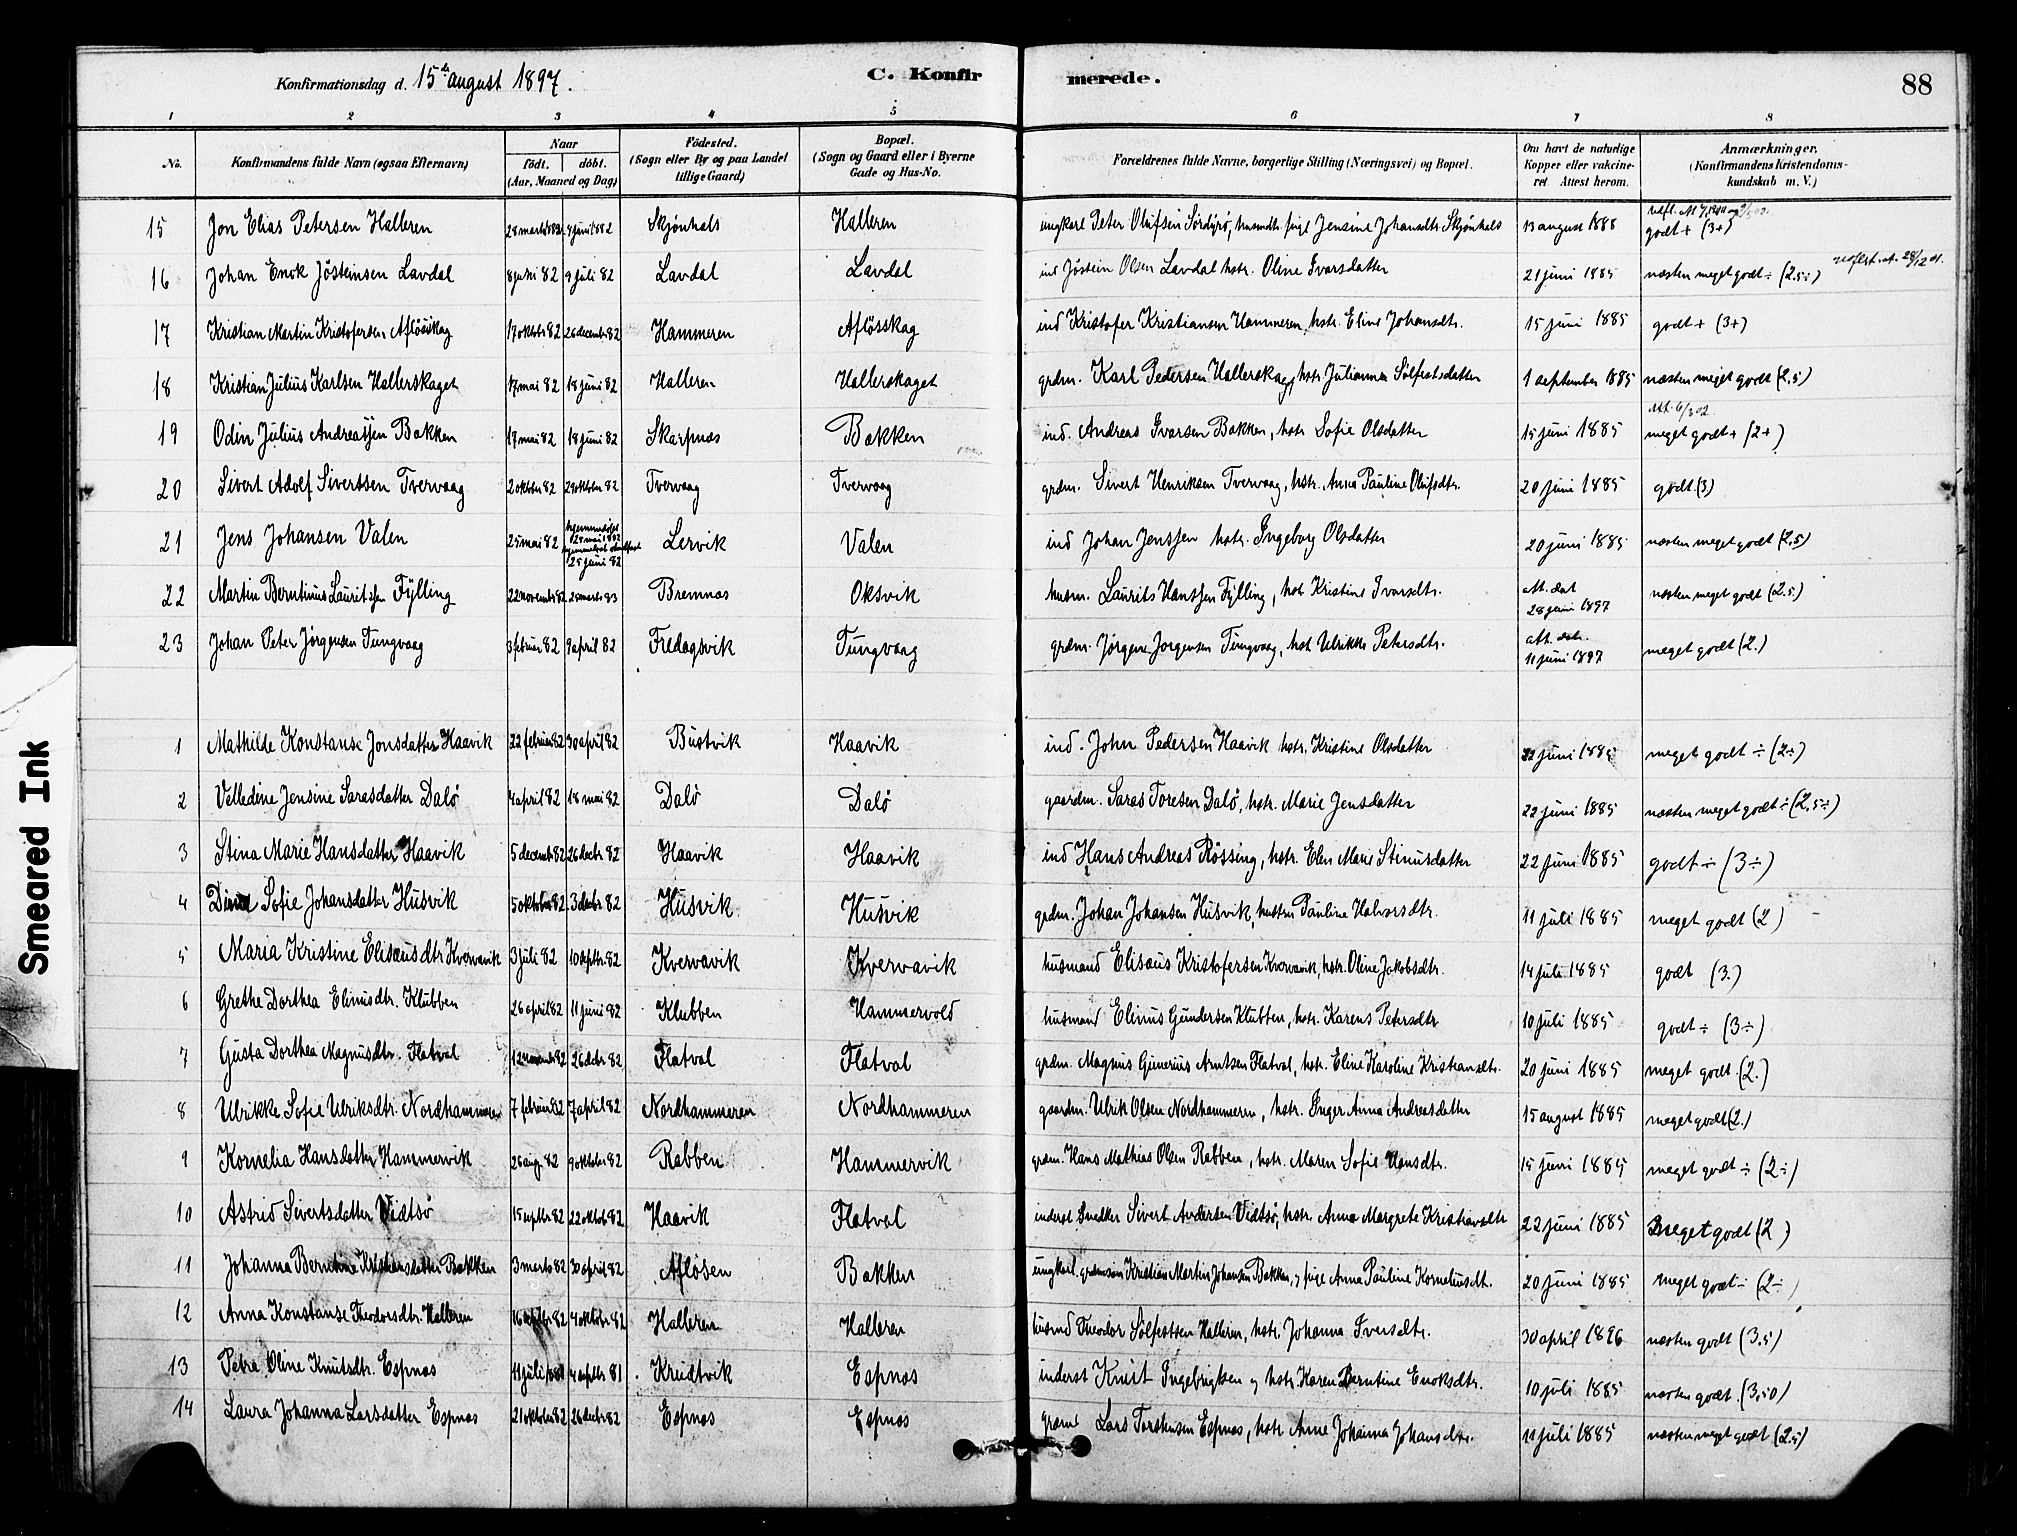 Konfirmationsdag d. 15de august 1897.
C. Konfirmerede.
88
1 2 3 4 5 6 7 8
No.
Konfirmandens fulde Navn (ogsaa Efternavn)
Naar
født. døbt.
(Aar, Maaned og Dag)
Födested.
(Sogn eller By og paa Landet
tillige Gaard)
Bopæl.
(Sogn og Gaard eller i Byerne
Gade og Hus-No.
Forældrenes fulde Navne, borgerlige Stilling (Næringsvei) og Bopæl.
Om havt de naturlige
Kopper eller vakcine-
ret. Attest herom.
Anmærkninger.
(Konfirmandens Kristendoms-
kundskab m. V.)
15 Jon Elias Petersen Halleren 28 marts 1882 4 juni 1882 Skjønhals Halleren ungkarl Peter Olufsen Sördyrö, husmdtr pige Jensine Johansdtr Skjønhals 13 august 1888 godt + (3+)
16 Johan Enok Jösteinsen Lavdal 8 juni 82 9 juli 82 Lavdal Lavdal ind Jöstein Olsen Lavdal hstr. Oline Ivarsdatter 21 juni 1885 næsten meget godt ÷ (2.5÷) 28/12 01.
17 Kristian Martin Kristofersen Aflösskag 17 oktober 82 26 decembr 82 Hammeren Aflösskag ind Kristofer Kristiansen Hammeren, hstr. Eline Johansdtr. 15 juni 1885 godt + (3+)
18 Kristian Julius Karlsen Hallerskaget 17 mai 82 18 juni 82 Halleren Hallerskaget grdm. Karl Pedersen Hallerskag, hstr Julianna Sölfestsdatter 1 september 1885 næsten meget godt (2,5)
19 Odin Julius Andreassen Bakken 17 mai 82 18 juni 82 Skarpnæs Bakken ind. Andreas Ivarsen Bakken, hstr Sofie Olsdatter 15 juni 1885 meget godt + (2+)
20 Sivert Adolf Sivertssen Tvervaag 2 oktober 82 29 oktober 82 Tvervaag Tvervaag grdm. Sivert Henriksen Tvervaag, hstr. Anna Pauline Olufsdtr. 20 juni 1885 godt (3)
21 Jens Johansen Valen 25 mai 82 25 juni 82 Lervik Valen ind Johan Jenssen hstr. Ingeborg Olsdatter 20 juni 1885 næsten meget godt (2,5)
22 Martin Berntinus Lauritssen Fÿlling 22 november 82 25 marts 83 Bremnæs Oksvik husm. Laurits Hanssen Fÿlling, hstr Kristine Ivarsdtr. att. dat 28 juni 1897 næsten meget godt (2.5)
23 Johan Peter Jörgensen Tungvaag 3 februar 82 9 april 82 Fredagsvik Tungvaag grdm. Jørgen Jørgensen Tungvaag, hst Ulrikke Petersdtr. att. datr. 11 juni 1897 meget godt (2.)
1 Mathilde Konstanse Jonsdatter Haavik 22 februar 82 30 april 82 Bustvik Haavik ind. John Pedersen Haavik hstr. Kristine Olsdatter 22 juni 1885 meget godt ÷ (2÷)
2 Velledine Jensine Sarasdatter Dalö 4 april 82 18 mai 82 Dalö Dalö gaardm. Saras Toresen Dalö, hstr. Marie Jensdatter 22 juni 1885 næsten meget godt ÷ (2,5÷)
3 Stina Marie Hansdatter Haavik 5 decembr 82 26 decbr 82 Haavik Haavik ind Hans Andreas Rössing, hstr. Elen Marie Stinusdatter 22 juni 1885 godt ÷ (3÷)
4 Dina Sofie Johansdatter Husvik 5 oktober 82 3 decbr 82 Husvik Husvik grdm. Johan Johansen Husvik, hustru Pauline Halvorsdtr. 11 juli 1885 meget godt (2)
5 Maria Kristine Elisæusdtr Kvervavik 3 juli 82 10 septbr 82 Kvervavik Kvervavik husmand Elisæus Kristofersen Kvervavik, hstr. Oline Jakobsdtr. 14 juli 1885 godt (3.)
6 Grethe Dorthea Elinusdtr. Klubben 26 april 82 11 juni 82 Klubben Hammervold husmand Elinus Gundersen Klubben, hstr. Karens Petersdtr 10 juli 1885 godt ÷ (3÷)
7 Gusta Dorthea Magnusdtr. Flatval 12 novembr 82 26 decbr 82 Flatval Flatval grdm. Magnus Gunerius Arntsen Flatval, hstr. Eline Karoline Kristiansdtr. 20 juni 1885 meget godt. (2.)
8 Ulrikke Sofie Ulriksdtr. Nordhammeren 7 februar 82 7 april 82 Nordhammeren Nordhammeren gaardm. Ulrik Olsen Nordhammeren, hstr. Inger Anna Andreasdatter 15 august 1885 meget godt (2.)
9 Kornelia Hansdatter Hammervik 26 aug. 82 9 oktober 82 Rabben Hammervik grdm. Hans Mathias Olsen Rabben, hstr. Maren Sofie Hansdtr. 15 juni 1885 meget godt ÷ (2÷)
10 Astrid Sivertsdatter Vidtsø 15 septbr 82 22 oktob 82 Haavik Flatval inderst Snedker Sivert Andersen Vidtsø, hstr. Anna Margrete Kristiansdtr 22 juni 1885 meget godt (2)
11 Johanna Berntine Kristiansdatter Bakken 3 marts 82 30 april 82 Aflösen Bakken ungkarl. grdmsøn Kristian Martin Johansen Bakken, & pige Anna Pauline Korneliusdt. 20 juni 1885 meget godt ÷ (2÷)
12 Anna Konstanse Theodorsdtr. Halleren 16 septbr 82 4 oktobr 82 Halleren Halleren husmd Theodor Sölfestsen Halleren, hstr. Johanna Iversdtr. 30 april 1896 næsten godt (3,5)
13 Petra Oline Knutsdtr. Espnæs 11 juli 1881 4 septbr 81 Krudtvik Espnæs inderst Knut Ingebrigtsen & hstr. Karen Berntine Enoksdtr. 10 juli 1885 næsten godt. (3,50)
14 Laura Johanna Larsdatter Espnæs 21 oktober 82 26 decbr 82 Espnæs Espnæs grdmd Lars Torstensen Espnæs, hstr. Anne Johanna Johansdtr. 11 juli 1885 næsten meget godt (2.5)
Smeared Ink